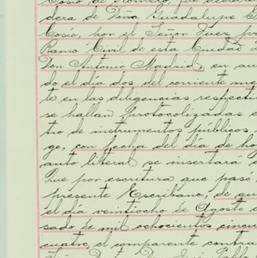 dera de Doña Guadalupe C
Cosio, por el Señor Juez
Ramo Civil de esta Ciudad
Don Antonio Madrid, en au
do el día dos del corriente me
te en las diligencias respecti
se hallan protocolizadas e
tro de instrumentos públicos
go, con fecha del día de ho
auto literal se insertará
Que por escritura que pasó
presente Escribano, de
el día veintiocho de Agosto
sado de mil ochocientos cincu
cuatro, el compareciente contra